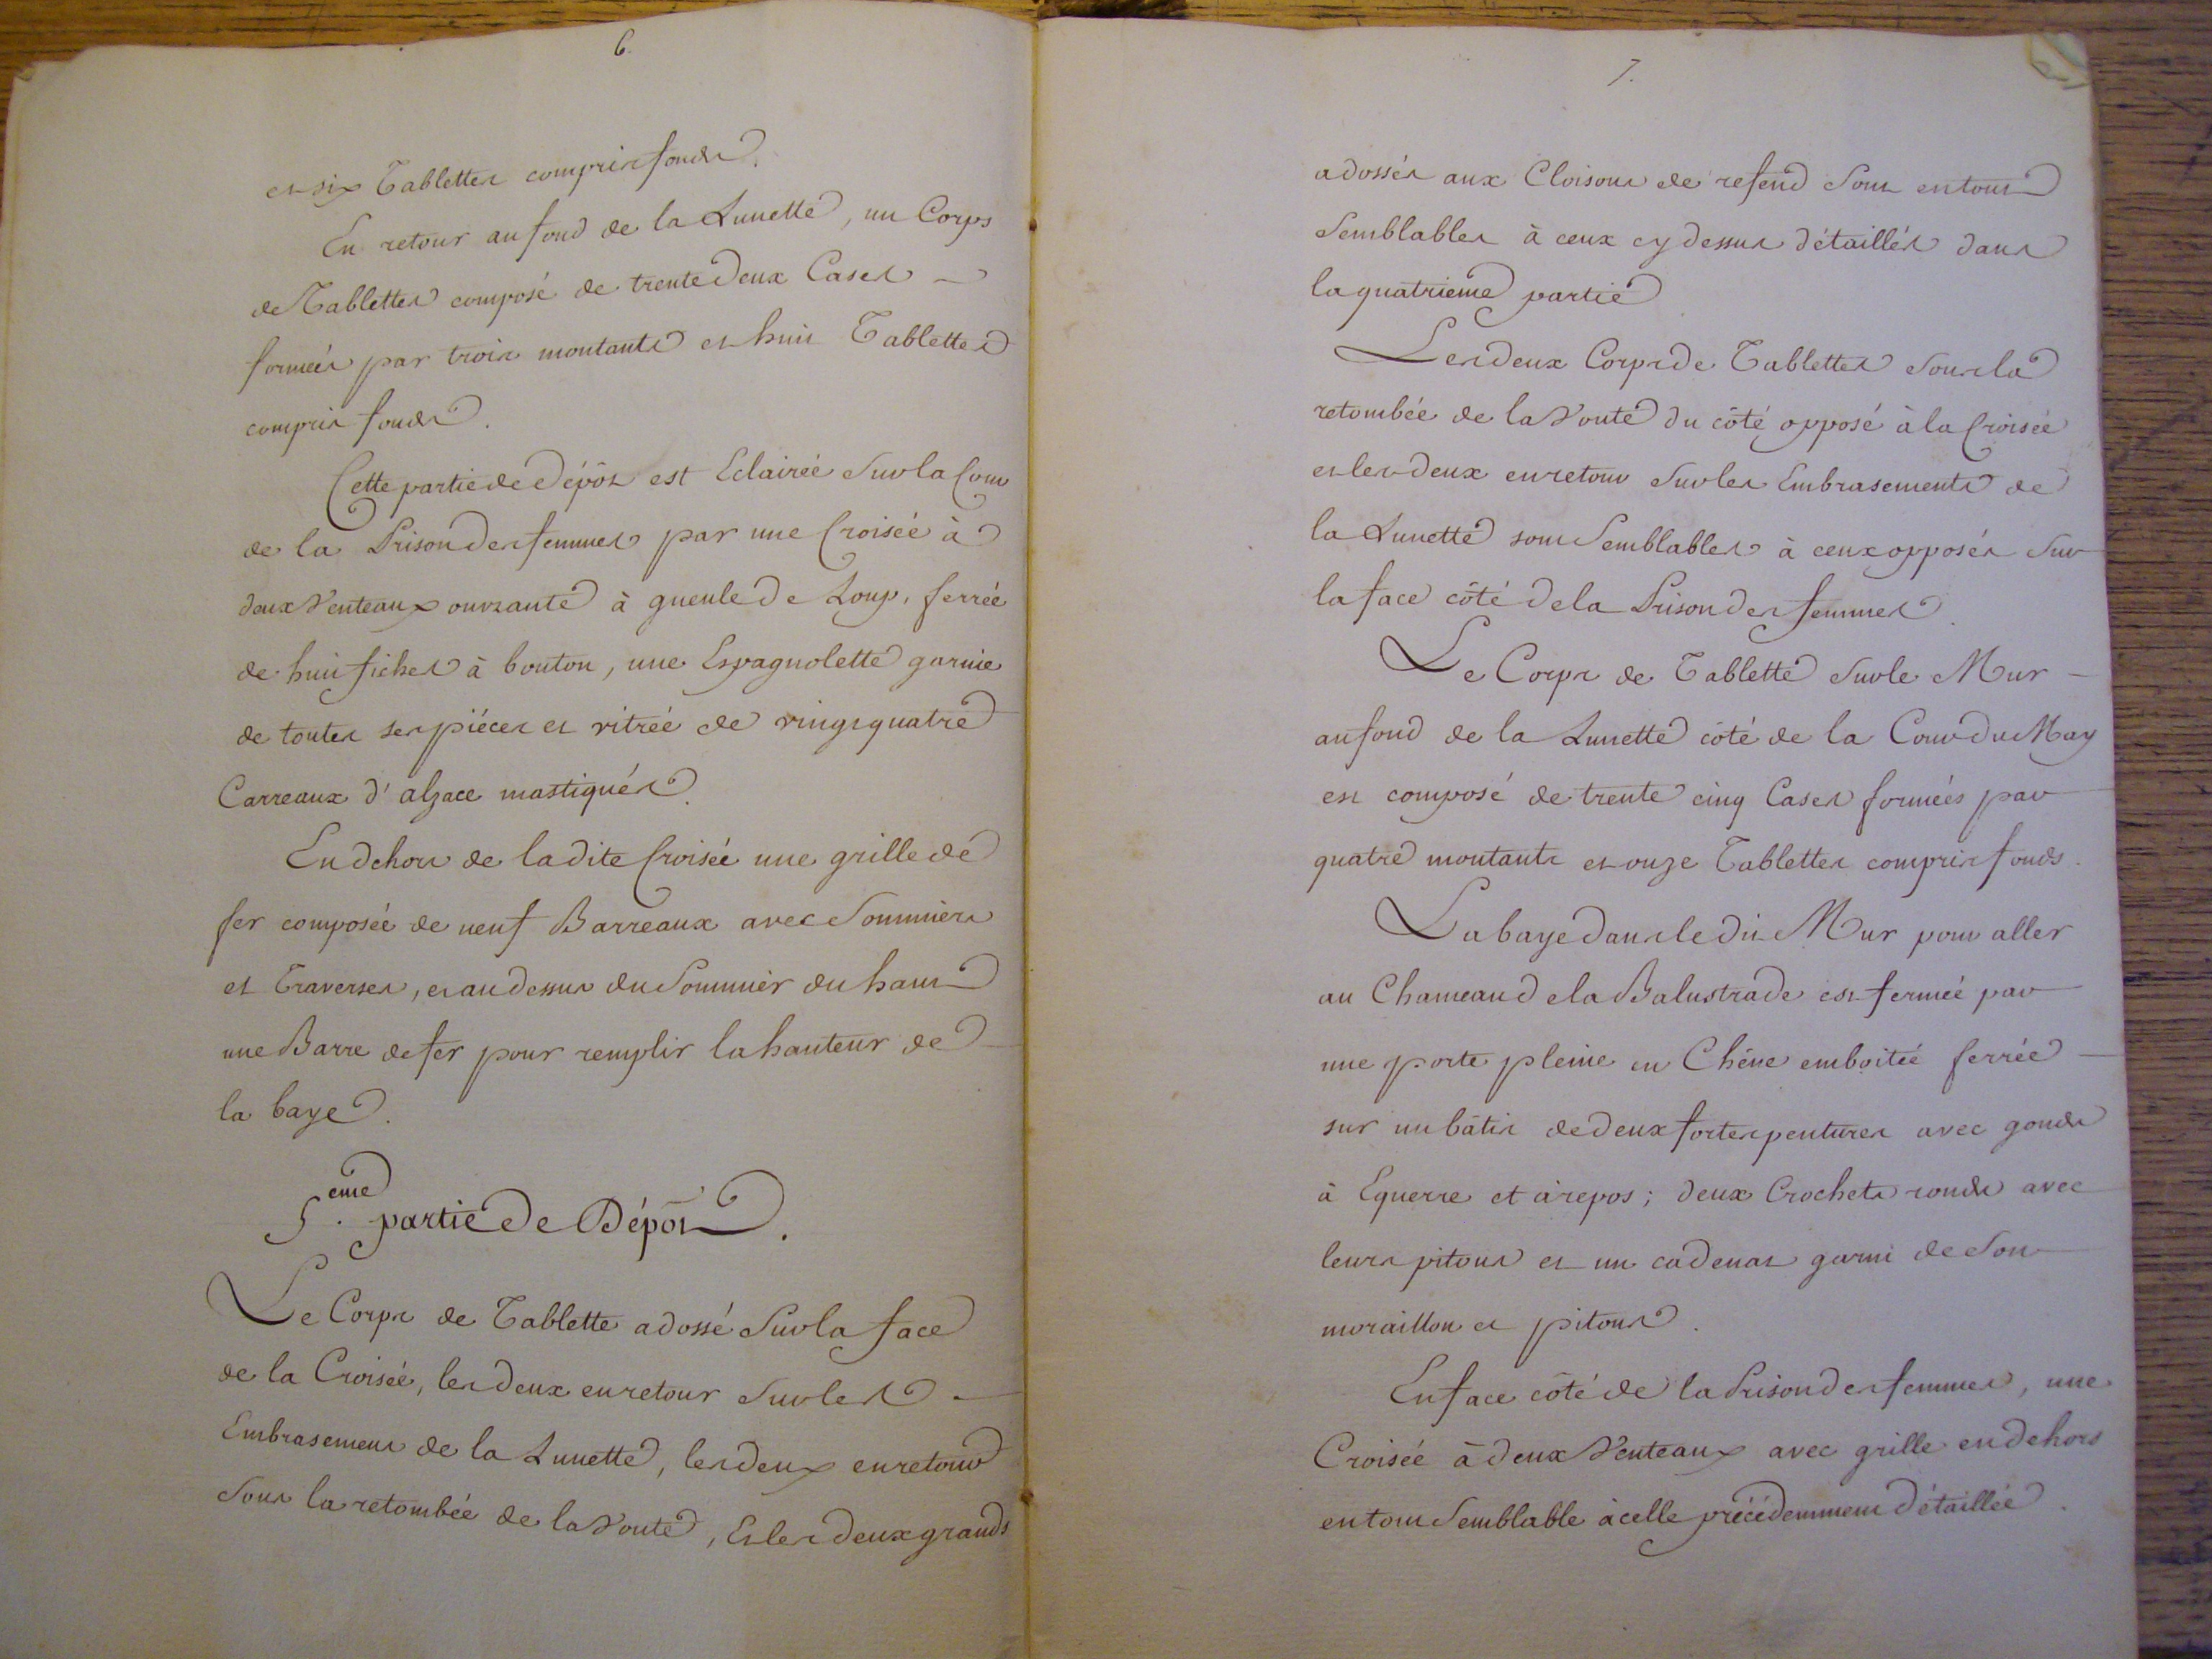 6.
et six Tablettes compris fonds.
En retour au fond de la Lunette, un Corps
de Tablettes composé de trente deux Cases
formées par trois montants et huit Tablettes
compris fonds.
Cette partie de Dépôt est Eclairée Sur la Cour
de la Prison des femmes par une Croisée à
deux Venteaux ouvrante à gueule de Loup, ferrée
de huit fiches à bouton, une Espagnolette garnie
de toutes ses piéces et vitrée de vingt quatre
Carreaux d'alzace mastiqués.
En dehors de ladite Croisée une grille de
fer composée de neuf Barreaux avec Sommiers
et Traverses, et au dessus du Sommier du haut
une Barre de fer pour remplir la hauteur de
la baye.
5.eme partie de Dépôt.
Le Corps de Tablette adossé Sur la face
de la Croisée, les deux en retour Sur les
Embrasemens de la Lunette, les deux en retour
Sous la retombée de la Voute, Et les deux grands
7.
adossés aux Cloisons de refend Sont en tout
Semblables à ceux cy dessus détaillés dans
la quatrieme partie
Les deux Corps de Tablettes Sous la
retombée de la Voute du côté opposé à la Croisée
et les deux en retour Sur les Embrasements de
la Lunette sont Semblables à ceux opposés Sur
la face côté de la Prison des femmes.
Le Corps de Tablette Sur le Mur
au fond de la Lunette côté de la Cour du May
est composé de trente cinq Cases formées par
quatre montants et onze Tablettes compris fonds.
La baye dans le dit Mur pour aller
au Chameau de la Balustrade est fermée par
une porte pleine en Chêne emboitée ferrée
sur un bâtis de deux fortes pentures avec gonds
à Equerre et à repos; deux Crochets ronds avec
leurs pitons et un cadenat garni de Son
moraillon et pitons.
En face côté de la Prison des femmes, une
Croisée à deux Venteaux avec grille en dehors
en tout Semblable à celle précédemment détaillée.